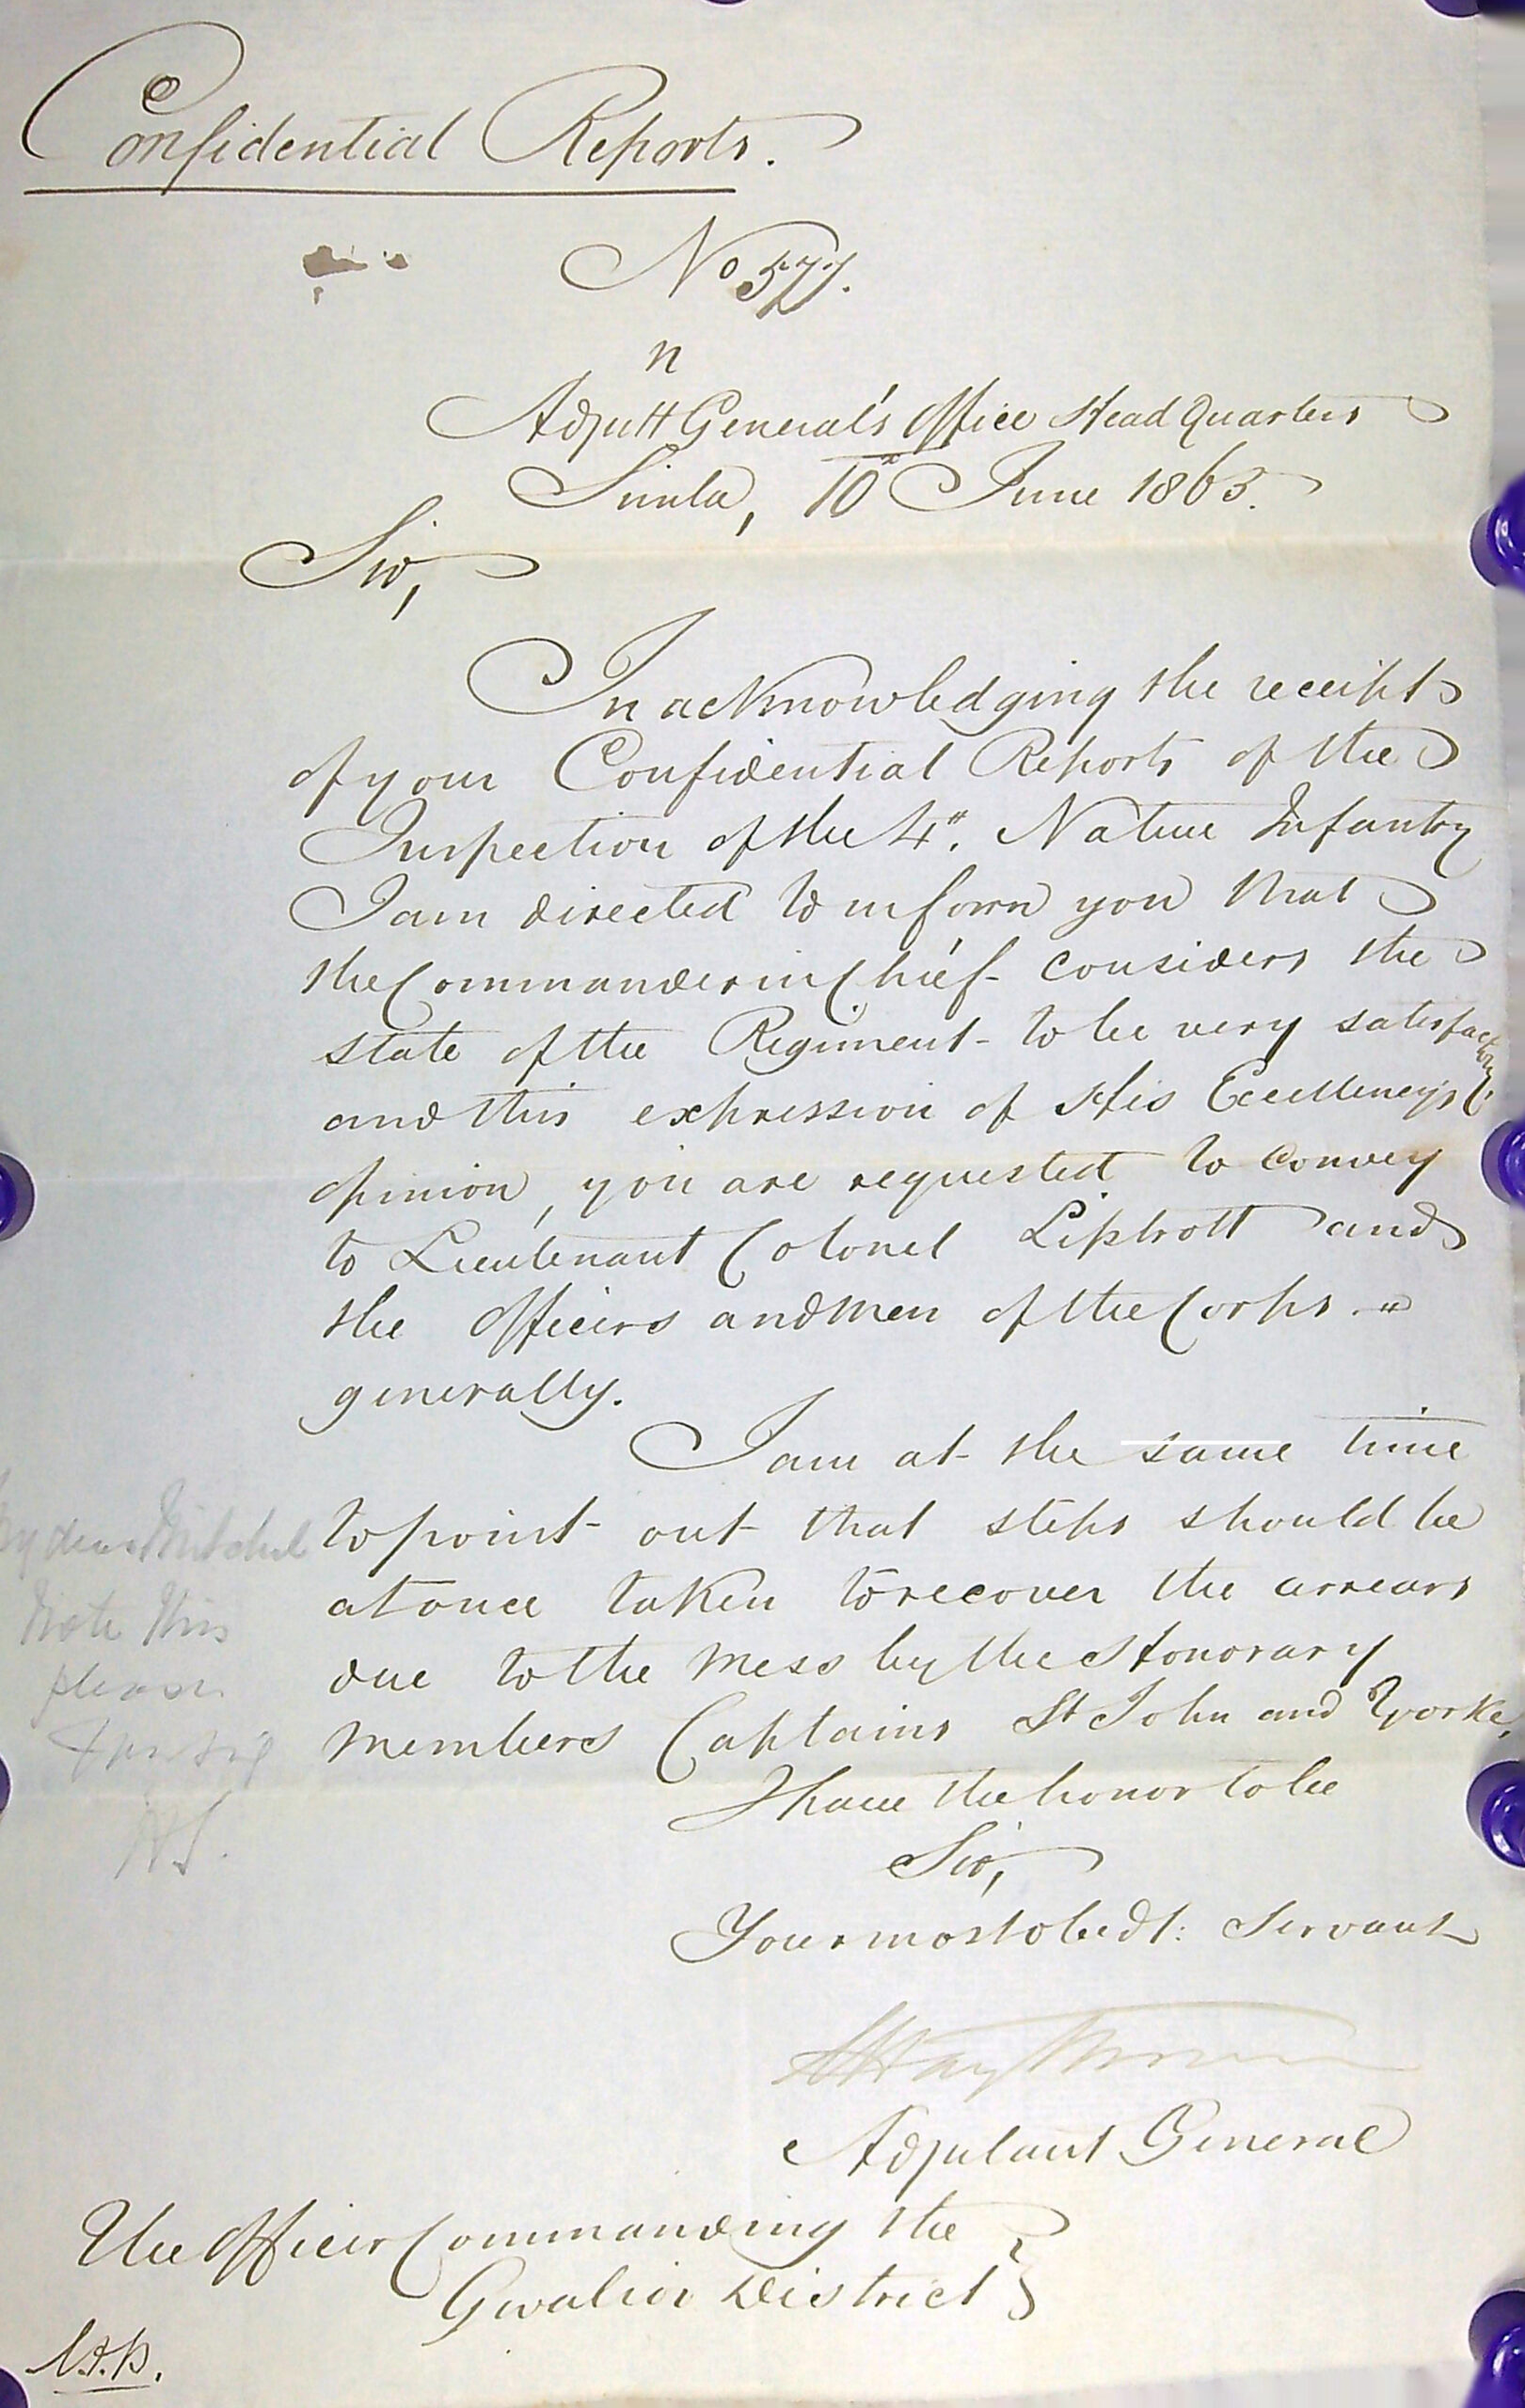 Confidential Reports.
No 577.
n
Adjutt General's Office Head Quarters
Simla, 10th June 1863.
Sir,
In acknowledging the receipt
of your Confidential Reports of the
Inspection of the 4". Native Infantry
I am directed to inform you that
the Commander in Chief considers the
state of the Regiment to be very satisfactory
and this expression of His Excellency's
opinion, you are requested to convey
to Lieutenant Colonel Liptrott and
the Officers and Men of the Corps
generally.
I am at the same time
to point out that steps should be
at once taken to recover the arrears
due to the Mess by the Honorary
Members Captains St John and Yorke,
My dear Mitchel
Note this
please
I have the honor to be
Sir,
Your most obedt: Servant
Adjutant General
The Officer Commanding the
Gwalior District